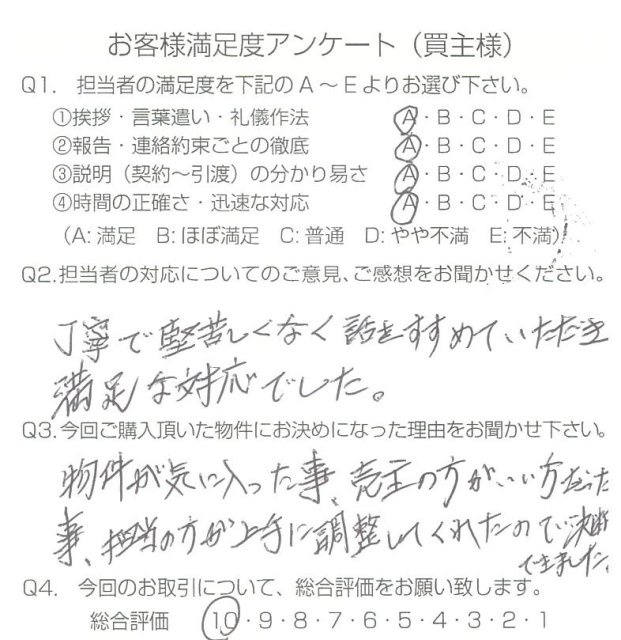 お客様満足度アンケート（買主様）
Q1. 担当者の満足度を下記のA～Eよりお選び下さい。
①挨拶・言葉遣い・礼儀作法 A・B・C・D・E
②報告・連絡約束ごとの徹底 A・B・C・D・E
③説明（契約～引渡）の分かり易さ A・B・C・D・E
④時間の正確さ・迅速な対応 A・B・C・D・E
（A:満足 B:ほぼ満足 C:普通 D:やや不満 E:不満）
Q2.担当者の対応についてのご意見、ご感想をお聞かせください。
丁寧で堅苦しくなく話をすすめていただき
満足な対応でした。
Q3.今回ご購入頂いた物件にお決めになった理由をお聞かせ下さい。
物件が気に入った事、売主の方がいい方だった
事、担当の方が上手に調整してくれたので決断
できました。
Q4. 今回のお取引について、総合評価をお願い致します。
総合評価 10・9・8・7・6・5・4・3・2・1